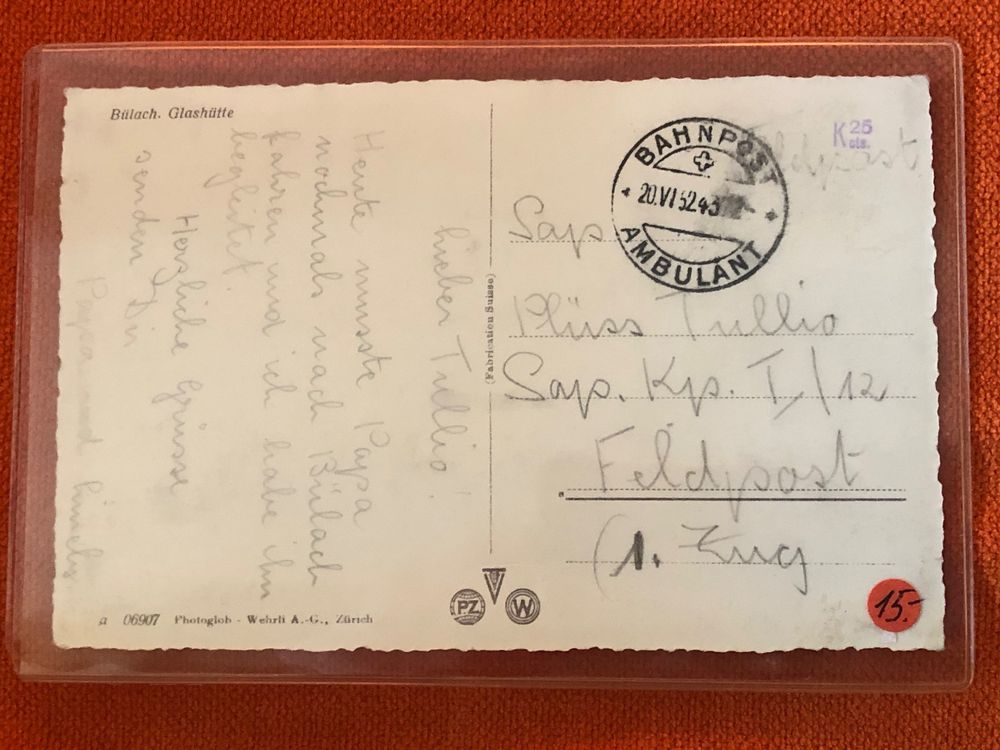 Bülach. Glashütte
Lieber Tullio!
Heute musste Papa
nochmals nach Bülach
fahren und ich habe ihn
begleitet.
Herzliche Grüsse
senden Dir
Papa und
(Fabrication Suisse)
a 06907 Photoglob - Wehrli A.-G., Zürich
PZ W
BAHNPOST
20.VI 52.43
AMBULANT
Feldpost
K 25
cts.
Sap.
Plüss Tullio
Sap. Kp. I/12
Feldpost
(1. Zug
15.-